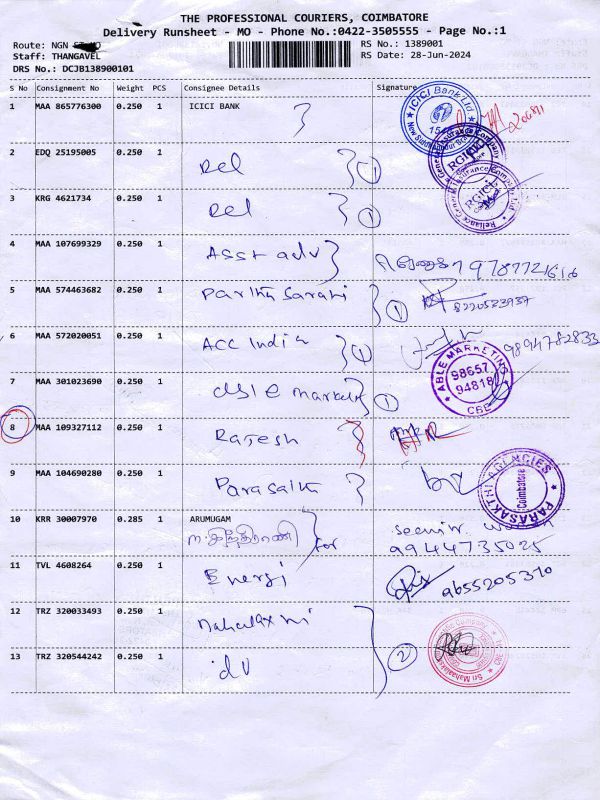 THE PROFESSIONAL COURIERS, COIMBATORE
Delivery Runsheet - MO - Phone No.:0422-3505555 - Page No.:1
Route: NGN
RS No.: 1389001
Staff: THANGAVEL
RS Date: 28-Jun-2024
DRS No.: DCJB138900101
S No Consignment No Weight PCS Consignee Details Signature
1 MAA 865776300 0.250 1 ICICI BANK
ICICI Bank Ltd.
2 EDQ 25195005 0.250 1 Rel 1
RGICL
3 KRG 4621734 0.250 1 Rel 1
RGICL
Reliance General Insurance Company Ltd.
4 MAA 107699329 0.250 1 Asst adv
5 MAA 574463682 0.250 1 Parthi Sarani 1 8220533937
6 MAA 572020051 0.250 1 ACC India 1 9894782833
ABLE MARKETING
98657
94818
CBE
7 MAA 301023690 0.250 1 1
8 MAA 109327112 0.250 1 Rajesh
9 MAA 104690280 0.250 1 Parasakthi
PARASAKTHI AGENCIES
Coimbatore
10 KRR 30007970 0.285 1 ARUMUGAM
for
9944735025
11 TVL 4608264 0.250 1 Energi 9655205310
12 TRZ 320033493 0.250 1 Mahalaxmi
13 TRZ 320544242 0.250 1 dv 2